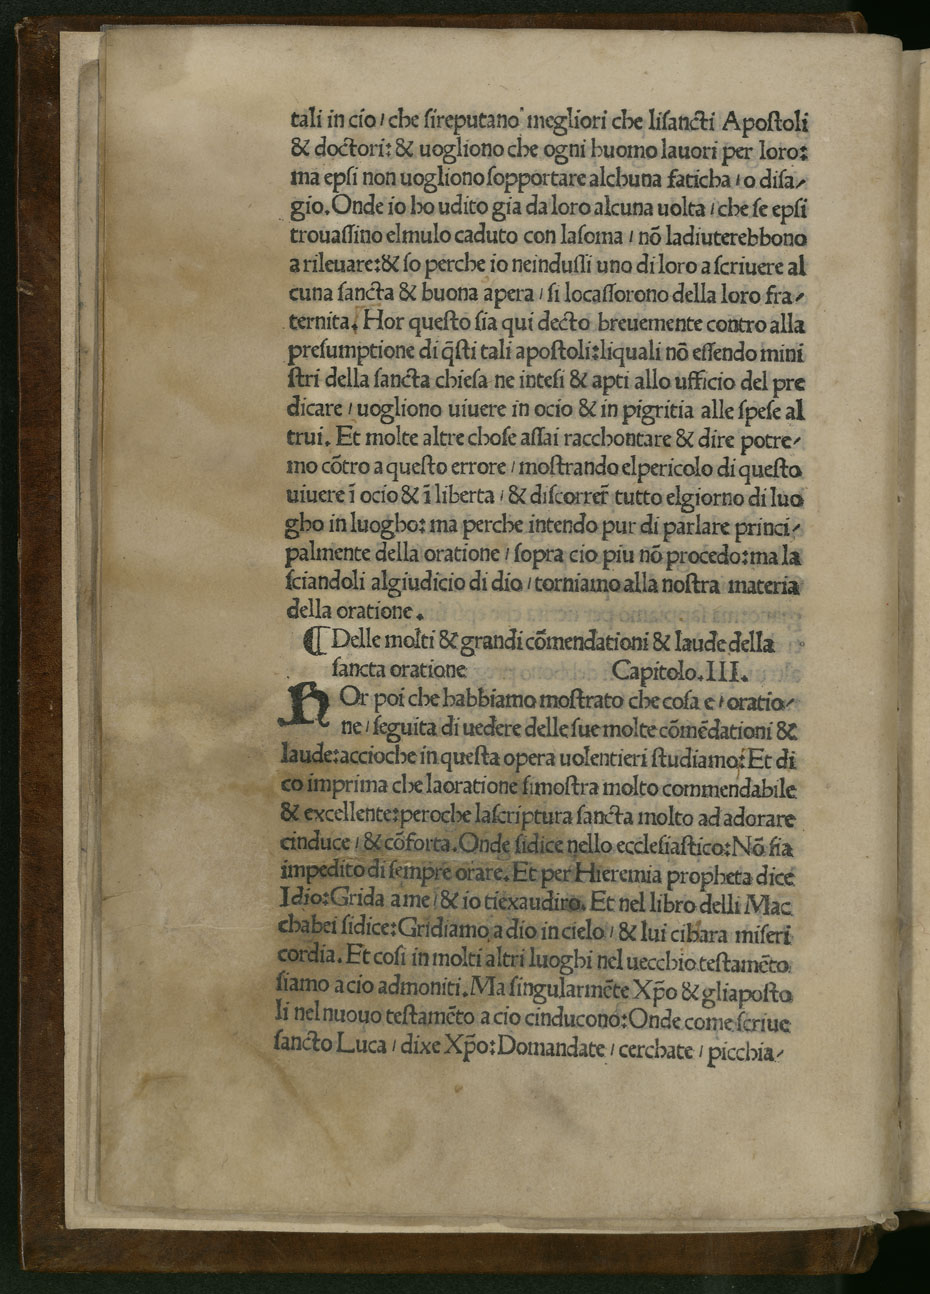 tali in cio / che sireputano megliori che lisancti Apostoli
& doctori: & uogliono che ogni huomo lauori per loro:
ma epsi non uogliono sopportare alchuna faticha / o disa/
gio. Onde io ho udito gia da loro alcuna uolta / che se epsi
trouassino elmulo caduto con lasoma / nō ladiuterebbono
a rileuare: & so perche io neindussi uno di loro a scriuere al
cuna sancta & buona apera / si locassorono della loro fra/
ternita. Hor questo sia qui decto breuemente contro alla
presumptione di q̄sti tali apostoli: liquali nō essendo mini
stri della sancta chiesa ne intesi & apti allo ufficio del pre
dicare / uogliono uiuere in ocio & in pigritia alle spese al
trui. Et molte altre chose assai racchontare & dire potre/
mo cōtro a questo errore / mostrando elpericolo di questo
uiuere ī ocio & ī liberta / & discorrer̄ tutto elgiorno di luo
gho in luogho: ma perche intendo pur di parlare princi/
palmente della oratione / sopra cio piu nō procedo: ma la
sciandoli algiudicio di dio / torniamo alla nostra materia
della oratione.
¶ Delle molti & grandi cōmendationi & laude della
sancta oratione Capitolo. III.
HOr poi che habbiamo mostrato che cosa e / oratio/
ne / seguita di uedere delle sue molte cōmēdationi &
laude: accioche in questa opera uolentieri studiamo: Et di
co imprima che laoratione simostra molto commendabile
& excellente: peroche lascriptura sancta molto ad adorare
cinduce / & cōforta. Onde sidice nello ecclesiastico: Nō sia
impedito di sempre orare. Et per Hieremia propheta dice
Idio: Grida a me / & io tiexaudiro. Et nel libro delli Mac
chabei sidice: Gridiamo a dio in cielo / & lui cihara miseri
cordia. Et cosi in molti altri luoghi nel uecchio testamēto
siamo a cio admoniti. Ma singularmēte Xp̄o & gliaposto
li nel nuouo testamēto a cio cinducono: Onde come scriue
sancto Luca / dixe Xp̄o: Domandate / cerchate / picchia/